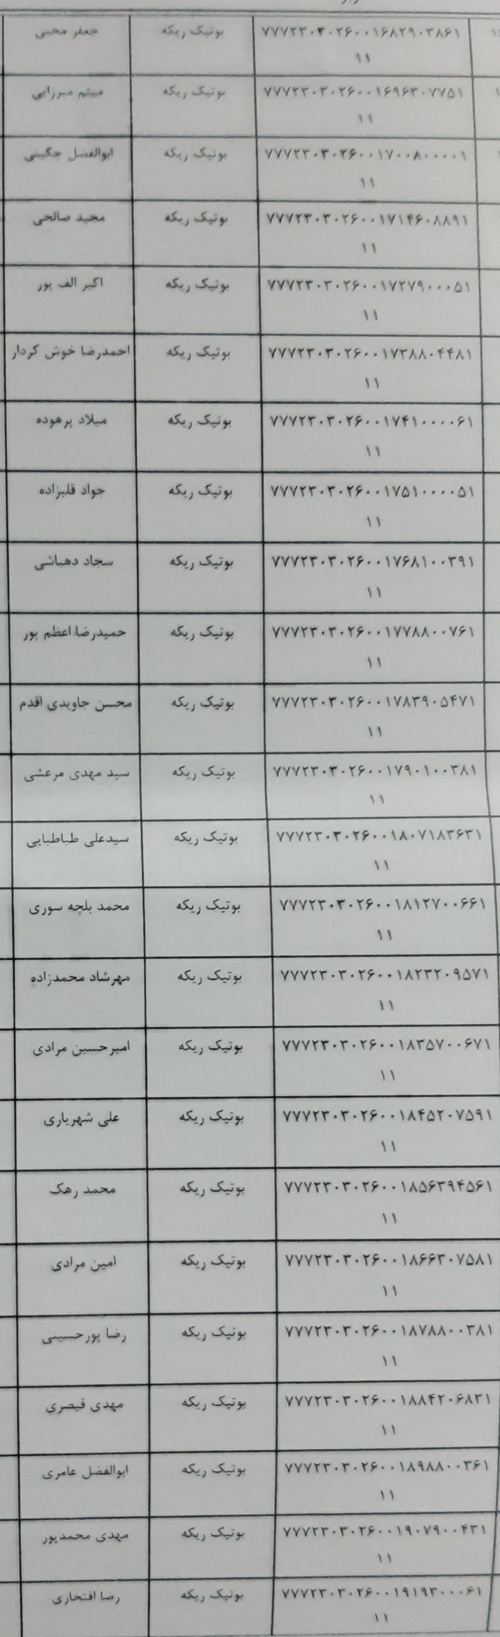 ۷۷۷۲۳۰۳۰۲۶۰۰۱۶۸۲۹۰۳۸۶۱ بوتیک ریکه جعفر محبی
۱۱
۷۷۷۲۳۰۳۰۲۶۰۰۱۶۹۶۳۰۷۷۵۱ بوتیک ریکه میثم میرزایی
۱۱
۷۷۷۲۳۰۳۰۲۶۰۰۱۷۰۰۸۰۰۰۰۱ بوتیک ریکه ابوالفضل چگینی
۱۱
۷۷۷۲۳۰۳۰۲۶۰۰۱۷۱۴۶۰۸۸۹۱ بوتیک ریکه مجید صالحی
۱۱
۷۷۷۲۳۰۳۰۲۶۰۰۱۷۲۷۹۰۰۰۵۱ بوتیک ریکه اکبر الف پور
۱۱
۷۷۷۲۳۰۳۰۲۶۰۰۱۷۳۸۸۰۴۴۸۱ بوتیک ریکه احمدرضا خوش کردار
۱۱
۷۷۷۲۳۰۳۰۲۶۰۰۱۷۴۱۰۰۰۰۶۱ بوتیک ریکه میلاد پرهوده
۱۱
۷۷۷۲۳۰۳۰۲۶۰۰۱۷۵۱۰۰۰۰۵۱ بوتیک ریکه جواد قلیزاده
۱۱
۷۷۷۲۳۰۳۰۲۶۰۰۱۷۶۸۱۰۰۳۹۱ بوتیک ریکه سجاد دهباشی
۱۱
۷۷۷۲۳۰۳۰۲۶۰۰۱۷۷۸۸۰۰۷۶۱ بوتیک ریکه حمیدرضا اعظم پور
۱۱
۷۷۷۲۳۰۳۰۲۶۰۰۱۷۸۳۹۰۵۴۷۱ بوتیک ریکه محسن جاویدی اقدم
۱۱
۷۷۷۲۳۰۳۰۲۶۰۰۱۷۹۰۱۰۰۳۸۱ بوتیک ریکه سید مهدی مرعشی
۱۱
۷۷۷۲۳۰۳۰۲۶۰۰۱۸۰۷۱۸۳۶۳۱ بوتیک ریکه سیدعلی طباطبایی
۱۱
۷۷۷۲۳۰۳۰۲۶۰۰۱۸۱۲۷۰۰۶۶۱ بوتیک ریکه محمد بلچه سوری
۱۱
۷۷۷۲۳۰۳۰۲۶۰۰۱۸۲۳۲۰۹۵۷۱ بوتیک ریکه مهرشاد محمدزاده
۱۱
۷۷۷۲۳۰۳۰۲۶۰۰۱۸۳۵۷۰۰۶۷۱ بوتیک ریکه امیرحسین مرادی
۱۱
۷۷۷۲۳۰۳۰۲۶۰۰۱۸۴۵۲۰۷۵۹۱ بوتیک ریکه علی شهریاری
۱۱
۷۷۷۲۳۰۳۰۲۶۰۰۱۸۵۶۳۹۴۵۶۱ بوتیک ریکه محمد رهک
۱۱
۷۷۷۲۳۰۳۰۲۶۰۰۱۸۶۶۳۰۷۵۸۱ بوتیک ریکه امین مرادی
۱۱
۷۷۷۲۳۰۳۰۲۶۰۰۱۸۷۸۸۰۰۳۸۱ بوتیک ریکه رضا پورحسینی
۱۱
۷۷۷۲۳۰۳۰۲۶۰۰۱۸۸۴۲۰۶۸۳۱ بوتیک ریکه مهدی قیصری
۱۱
۷۷۷۲۳۰۳۰۲۶۰۰۱۸۹۸۸۰۰۳۶۱ بوتیک ریکه ابوالفضل عامری
۱۱
۷۷۷۲۳۰۳۰۲۶۰۰۱۹۰۷۹۰۰۴۳۱ بوتیک ریکه مهدی محمدپور
۱۱
۷۷۷۲۳۰۳۰۲۶۰۰۱۹۱۹۳۰۰۰۶۱ بوتیک ریکه رضا افتخاری
۱۱